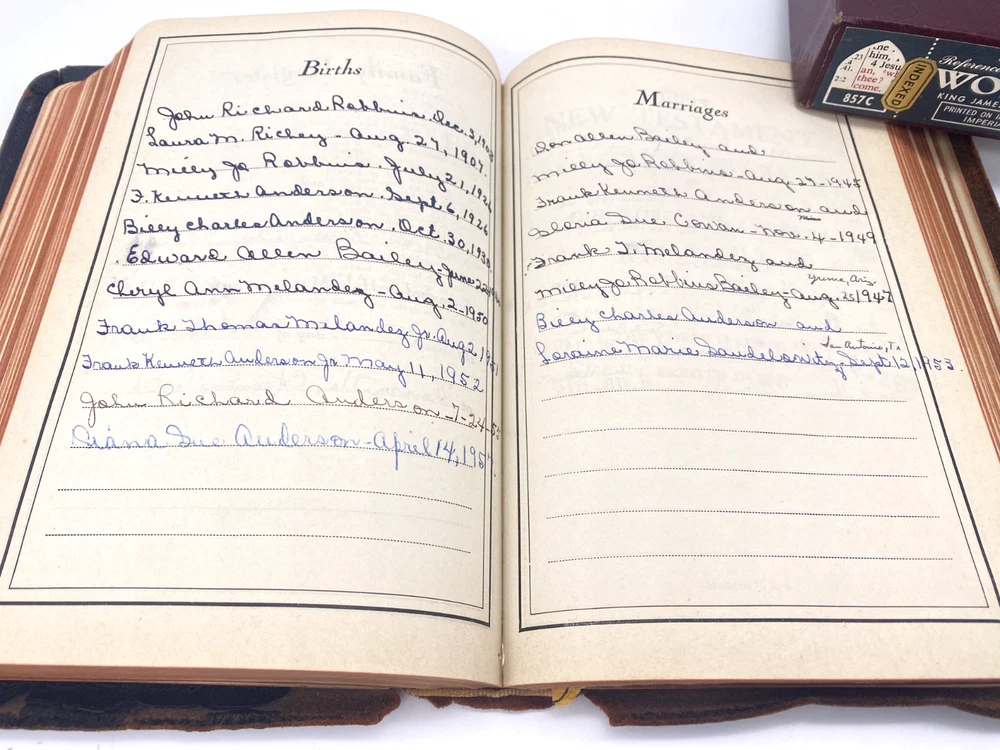 Births
John Richard Robbins. Dec. 3, 190
Laura M. Richey - Aug. 27, 1907.
Milly Jo Robbins. July 21, 192
F. Kenneth Anderson. Sept. 6, 1926
Billy Charles Anderson. Oct. 30, 193
Edward Allen Bailey - June 22
Cheryl Ann Melandez - Aug. 2 - 1950
Frank Thomas Melandez Jr. Aug 2, 19
Frank Kenneth Anderson Jr. May 11, 1952
John Richard Anderson - 7-24-5
Diana Sue Anderson - April 14, 195
Marriages
Don Allen Bailey and
Milly Jo Robbins - Aug. 27 - 1945
Frank Kenneth Anderson and
Gloria Sue Cowan - Nov. 4 - 1949
Frank T. Melandez and
Yuma, Ariz.
Milly Jo Robbins Bailey - Aug. 25, 1947
Billy Charles Anderson and
San Antonio, Tx
Loraine Marie Sept 12, 1953.
him,
4 Jesu
an,
thee?
come.
23
41.
2:2
857C
INDEXED
Reference
WO
KING JAME
PRINTED ON I
IMPERI